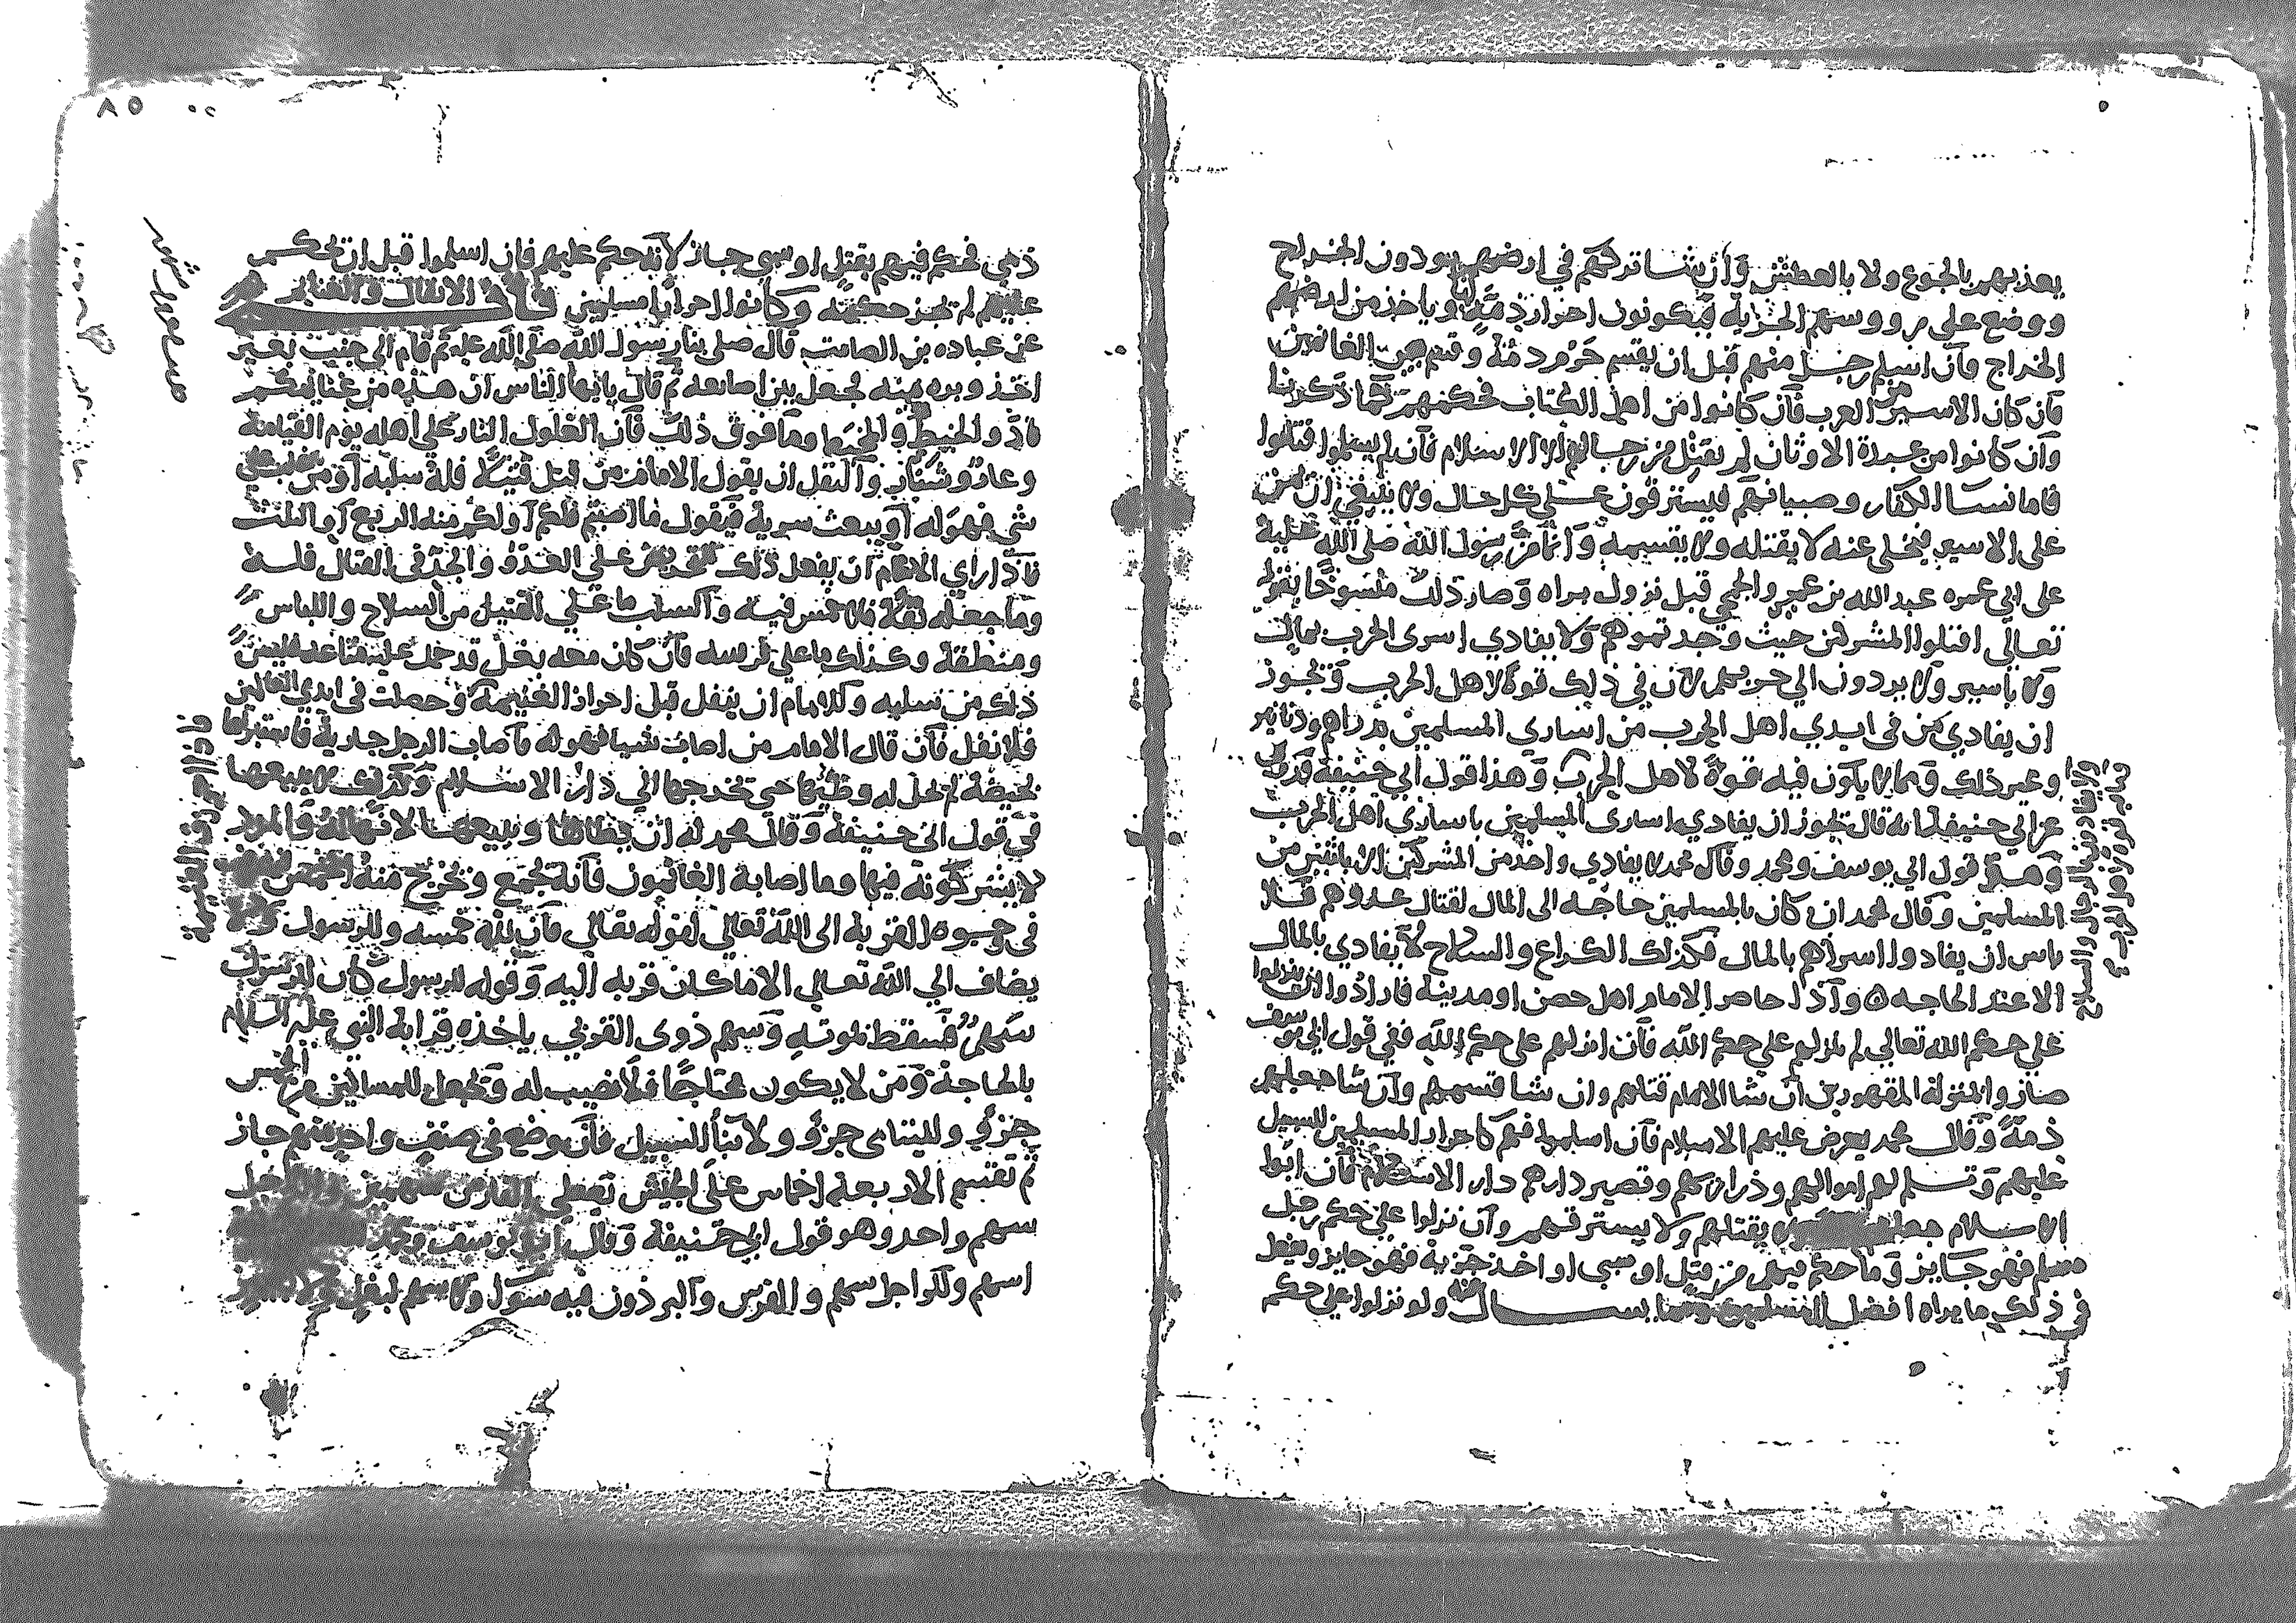 يعذبهم بالجوع ولا بالعطش وان شا تركهم في ارضهم يودون الخراج
ووضع على رووسهم الجزية فيكونون احرار ذمة لنا وياخذ من ارضهم
الخراج فان اسلم رجل منهم قبل ان يقسم حرم دمه وقسم بين الغانمين
فان كان الاسير من العرب فان كانوا من اهل الكتاب فحكمهم كما ذكرنا
وان كانوا من عبدة الاوثان لم يقبل من رجالهم الا الاسلام فان لم يسلموا قتلوا
فاما نسا الكفار وصبيانهم فيسترقون على كل حال ولا ينبغي ان يمن
على الاسير فيخلى عنه لا يقتله ولا يقسمه وانما من رسول الله صلى الله عليه
على ابي عمره عبد الله بن عمير والجمحي قبل نزول براه وصار ذلك منسوخا بقوله
تعالى اقتلوا المشركين حيث وجدتموهم ولا يفادي اسرى الحرب بمال
ولا باسير ولا يردون الي حربهم لان في ذلك قوة لاهل الحرب وتجوز
ان يفادي من في ايدي اهل الحرب من اساري المسلمين بدراهم ودنانير
وغير ذلك ومما لا يكون فيه قوة لاهل الحرب وهذا قول ابي حنيفة وروي
عن ابي حنيفة انه قال تجوز ان يفادي اسارى المسلمين باساري اهل الحرب
وهو قول ابي يوسف ومحمد وقال محمد لا يفادي واحد من المشركين الا باثنين من
المسلمين وقال محمد ان كان بالمسلمين حاجه الى المال لقتال عدوهم فلا
باس ان يفادوا اسراهم بالمال فكذلك الكراع والسلاح لا يفادي بالمال
الا عند الحاجه ه واذا حاصر الامام اهل حصن او مدينة فارادوا ان ينزلوا
على حكم الله تعالي لم ينزلهم على حكم الله فان انزلهم على حكم الله ففي قول ابي يوسف
صاروا بمنزلة المقهورين ان شا الامام قتلهم وان شا قسمهم وان شا جعلهم
ذمة وقال محمد يعرض عليهم الاسلام فان اسلموا فهم كاحرار المسلمين لا سبيل
عليهم وتسلم لهم اموالهم وذراريهم وتصير دارهم دار الاسلام فان ابوا
الاسلام جعلهم ولا يقتلهم ولا يسترقهم وان نزلوا على حكم رجل
مسلم فهو جايز وما حكم فيهم من قتل او سبى او اخذ جزية فهو جايز ويفعل
في ذلك ما يراه افضل للمسلمين ولو نزلوا على حكم
ذمي فحكم فيهم بقتل او سبى جاز لانه حكم عليهم فان اسلموا قبل ان يحكم
عليهم لم تجز حكمته وكانوا احرارا مسلمين باب الانفال والغنايم
عن عباده بن الصامت قال صلى بنا رسول الله صلى الله عليه ثم قام الى جنب بعير
اخذ وبره منه فجعل بين اصابعه ثم قال يايها الناس ان هذه من غنايمكم
فادو الخيط والمخيط وما فوق ذلك فان الغلول النار على اهله يوم القيامة
وعار وشنار والنفل ان يقول الامام من قتل قتيلا فله سلبه او من غلب على
شي فهو له او يبعث سرية فيقول ما اصبتم فلكم او لكم منه الربع او الثلث
فاذا راي الامام ان يفعل ذلك للتحريض على العدو والجد في القتال فله
وما جعله نفلا فلا خمس فيه والسلب ما على القتيل من السلاح واللباس
ومنطقة وكذلك ما على فرسه فان كان معه بغل قد حمل عليه متاعه فليس
ذلك من سلبه وللامام ان ينفل قبل احراز الغنيمة وحصلت في ايدي الغانمين
فلا نفل فان قال الامام من اصاب شيا فهو له فاصاب الرجل جارية فاستبراها
بحيضة لم تحل له وطئها حتى تخرجها الى دار الاسلام وكذلك لا يبيعها
في قول ابي حنيفة وقال محمد له ان يطاها ويبيعها لانها له
لا يشركونه فيها وما اصابه الغانمون فانه تجمع وتخرج منه الخمس
في وجوه القربة الى الله تعالي لقوله تعالي فان لله خمسه وللرسول
يضاف الي الله تعالى الا ما كان قربه اليه وقوله للرسول كان للرسول
سهم فسقط بموته وسهم ذوى القربي ياخذه قرابة النبي عليه السلام
بالحاجة ومن لا يكون محتاجا فلا نصيب له وتجعل للمساكين من الخمس
جزؤ ولليتامى جزؤ ولابنا السبيل فان وضع في صنف واحد منهم جاز
ثم تقسم الاربعة اخماس على الجيش تعطي الفارس سهمين وللراجل
سهم واحد وهو قول ابي حنيفة وقال ابو يوسف ومحمد
اسهم وللراجل سهم والفرس والبرذون فيه سوآ ولا سهم لبغل